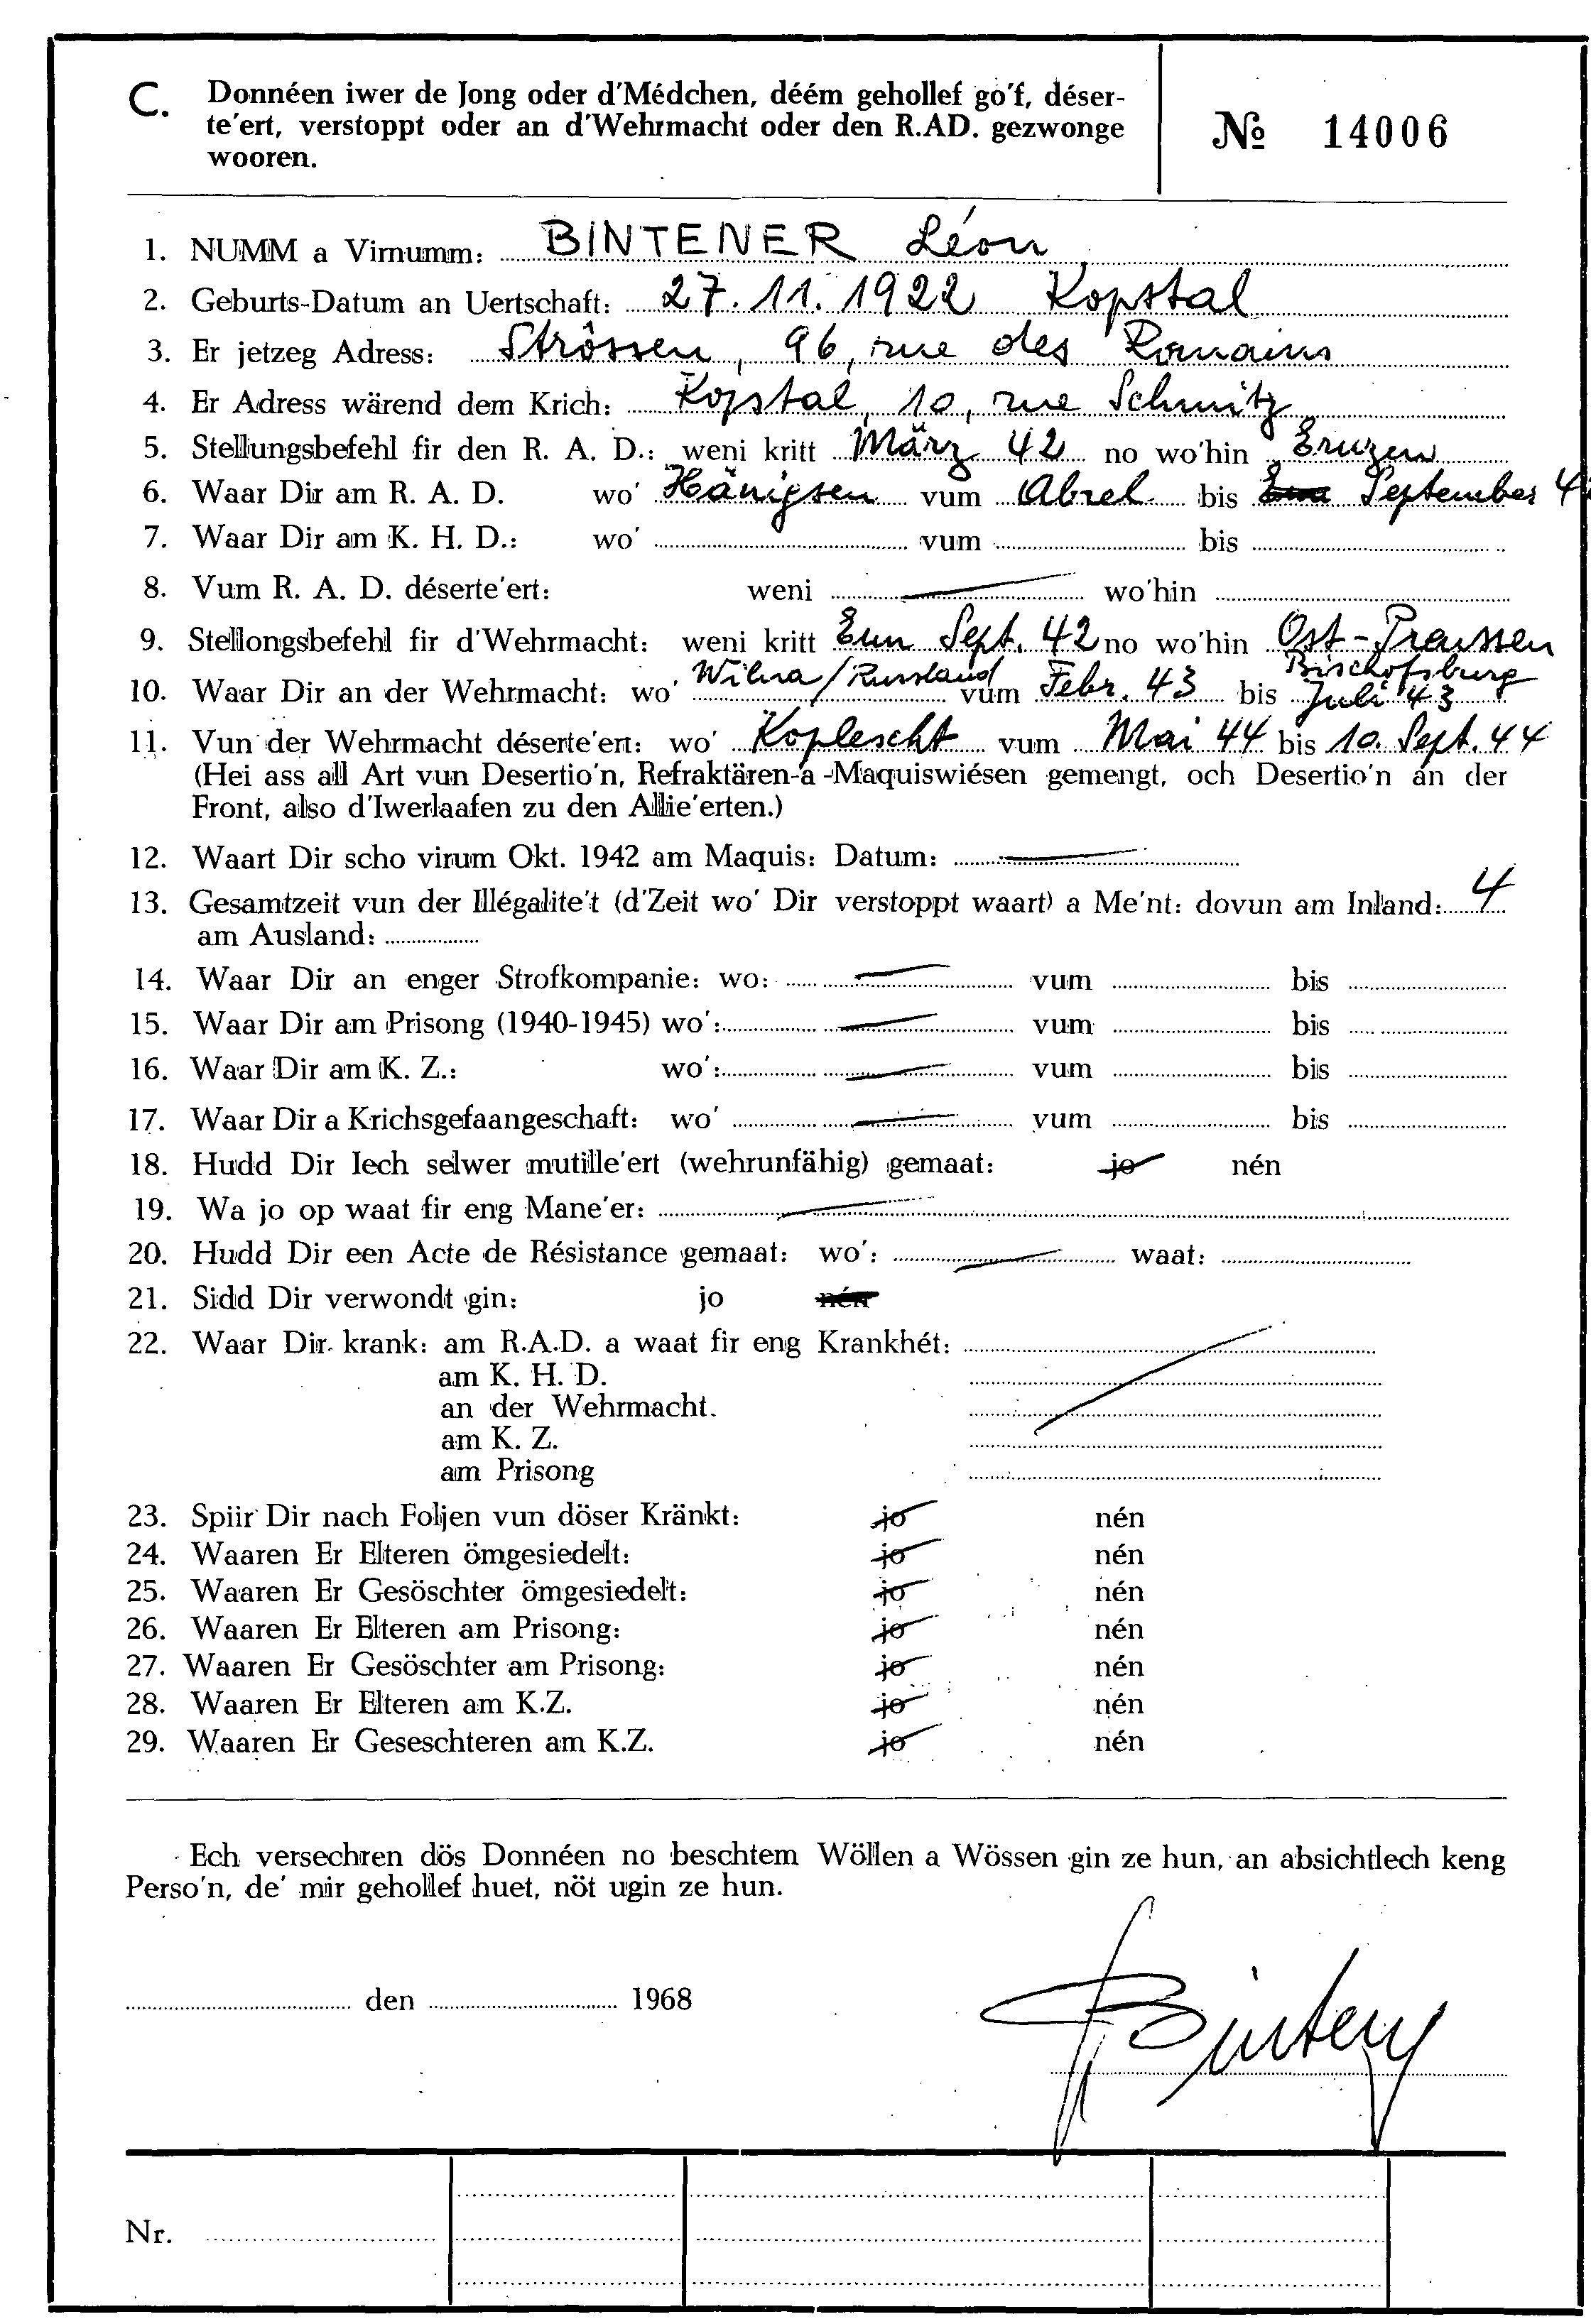 C. Donnéen iwer de Jong oder d'Médchen, déém gehollef go'f, déser-
te'ert, verstoppt oder an d'Wehrmacht oder den R.AD. gezwonge
wooren.
№ 14006
1. NUMM a Virnumm: BINTENER Léon
2. Geburts-Datum an Uertschaft: 27.11.1922 Kopstal
3. Er jetzeg Adress: Strôssen, 96, rue des Romains
4. Er Adress wärend dem Krich: Kopstal, 10, rue Schmitz
5. Stellungsbefehl fir den R. A. D.: weni kritt März 42 no wo'hin
6. Waar Dir am R. A. D. wo' Hänigsen vum Abrel bis September 42
7. Waar Dir am K. H. D.: wo' vum bis
8. Vum R. A. D. déserte'ert: weni wo'hin
9. Stellongsbefehl fir d'Wehrmacht: weni kritt Enn Sept. 42 no wo'hin Ost-Preussen
Bischofsburg
10. Waar Dir an der Wehrmacht: wo' Wilna/Russland vum Febr. 43 bis Juli 43
11. Vun der Wehrmacht déserte'ert: wo' Koplescht vum Mai 44 bis 10. Sept. 44
(Hei ass all Art vun Desertio'n, Refraktären-a -Maquiswiésen gemengt, och Desertio'n an der
Front, also d'Iwerlaafen zu den Allie'erten.)
12. Waart Dir scho virum Okt. 1942 am Maquis: Datum:
13. Gesamtzeit vun der Illégalite't (d'Zeit wo' Dir verstoppt waart) a Me'nt: dovun am Inland: 4
am Ausland:
14. Waar Dir an enger Strofkompanie: wo: vum bis
15. Waar Dir am Prisong (1940-1945) wo': vum bis
16. Waar Dir am K. Z.: wo': vum bis
17. Waar Dir a Krichsgefaangeschaft: wo' vum bis
18. Hudd Dir Iech selwer mutille'ert (wehrunfähig) gemaat: jo nén
19. Wa jo op waat fir eng Mane'er:
20. Hudd Dir een Acte de Résistance gemaat: wo': waat:
21. Sidd Dir verwondt gin: jo nén
22. Waar Dir krank: am R.A.D. a waat fir eng Krankhét:
am K. H. D.
an der Wehrmacht.
am K. Z.
am Prisong
23. Spiir Dir nach Foljen vun döser Kränkt: jo nén
24. Waaren Er Elteren ömgesiedelt: jo nén
25. Waaren Er Gesöschter ömgesiedelt: jo nén
26. Waaren Er Elteren am Prisong: jo nén
27. Waaren Er Gesöschter am Prisong: jo nén
28. Waaren Er Elteren am K.Z. jo nén
29. Waaren Er Geseschteren am K.Z. jo nén
Ech versechren dös Donnéen no beschtem Wöllen a Wössen gin ze hun, an absichtlech keng
Perso'n, de' mir gehollef huet, nöt ugin ze hun.
den 1968
Nr.